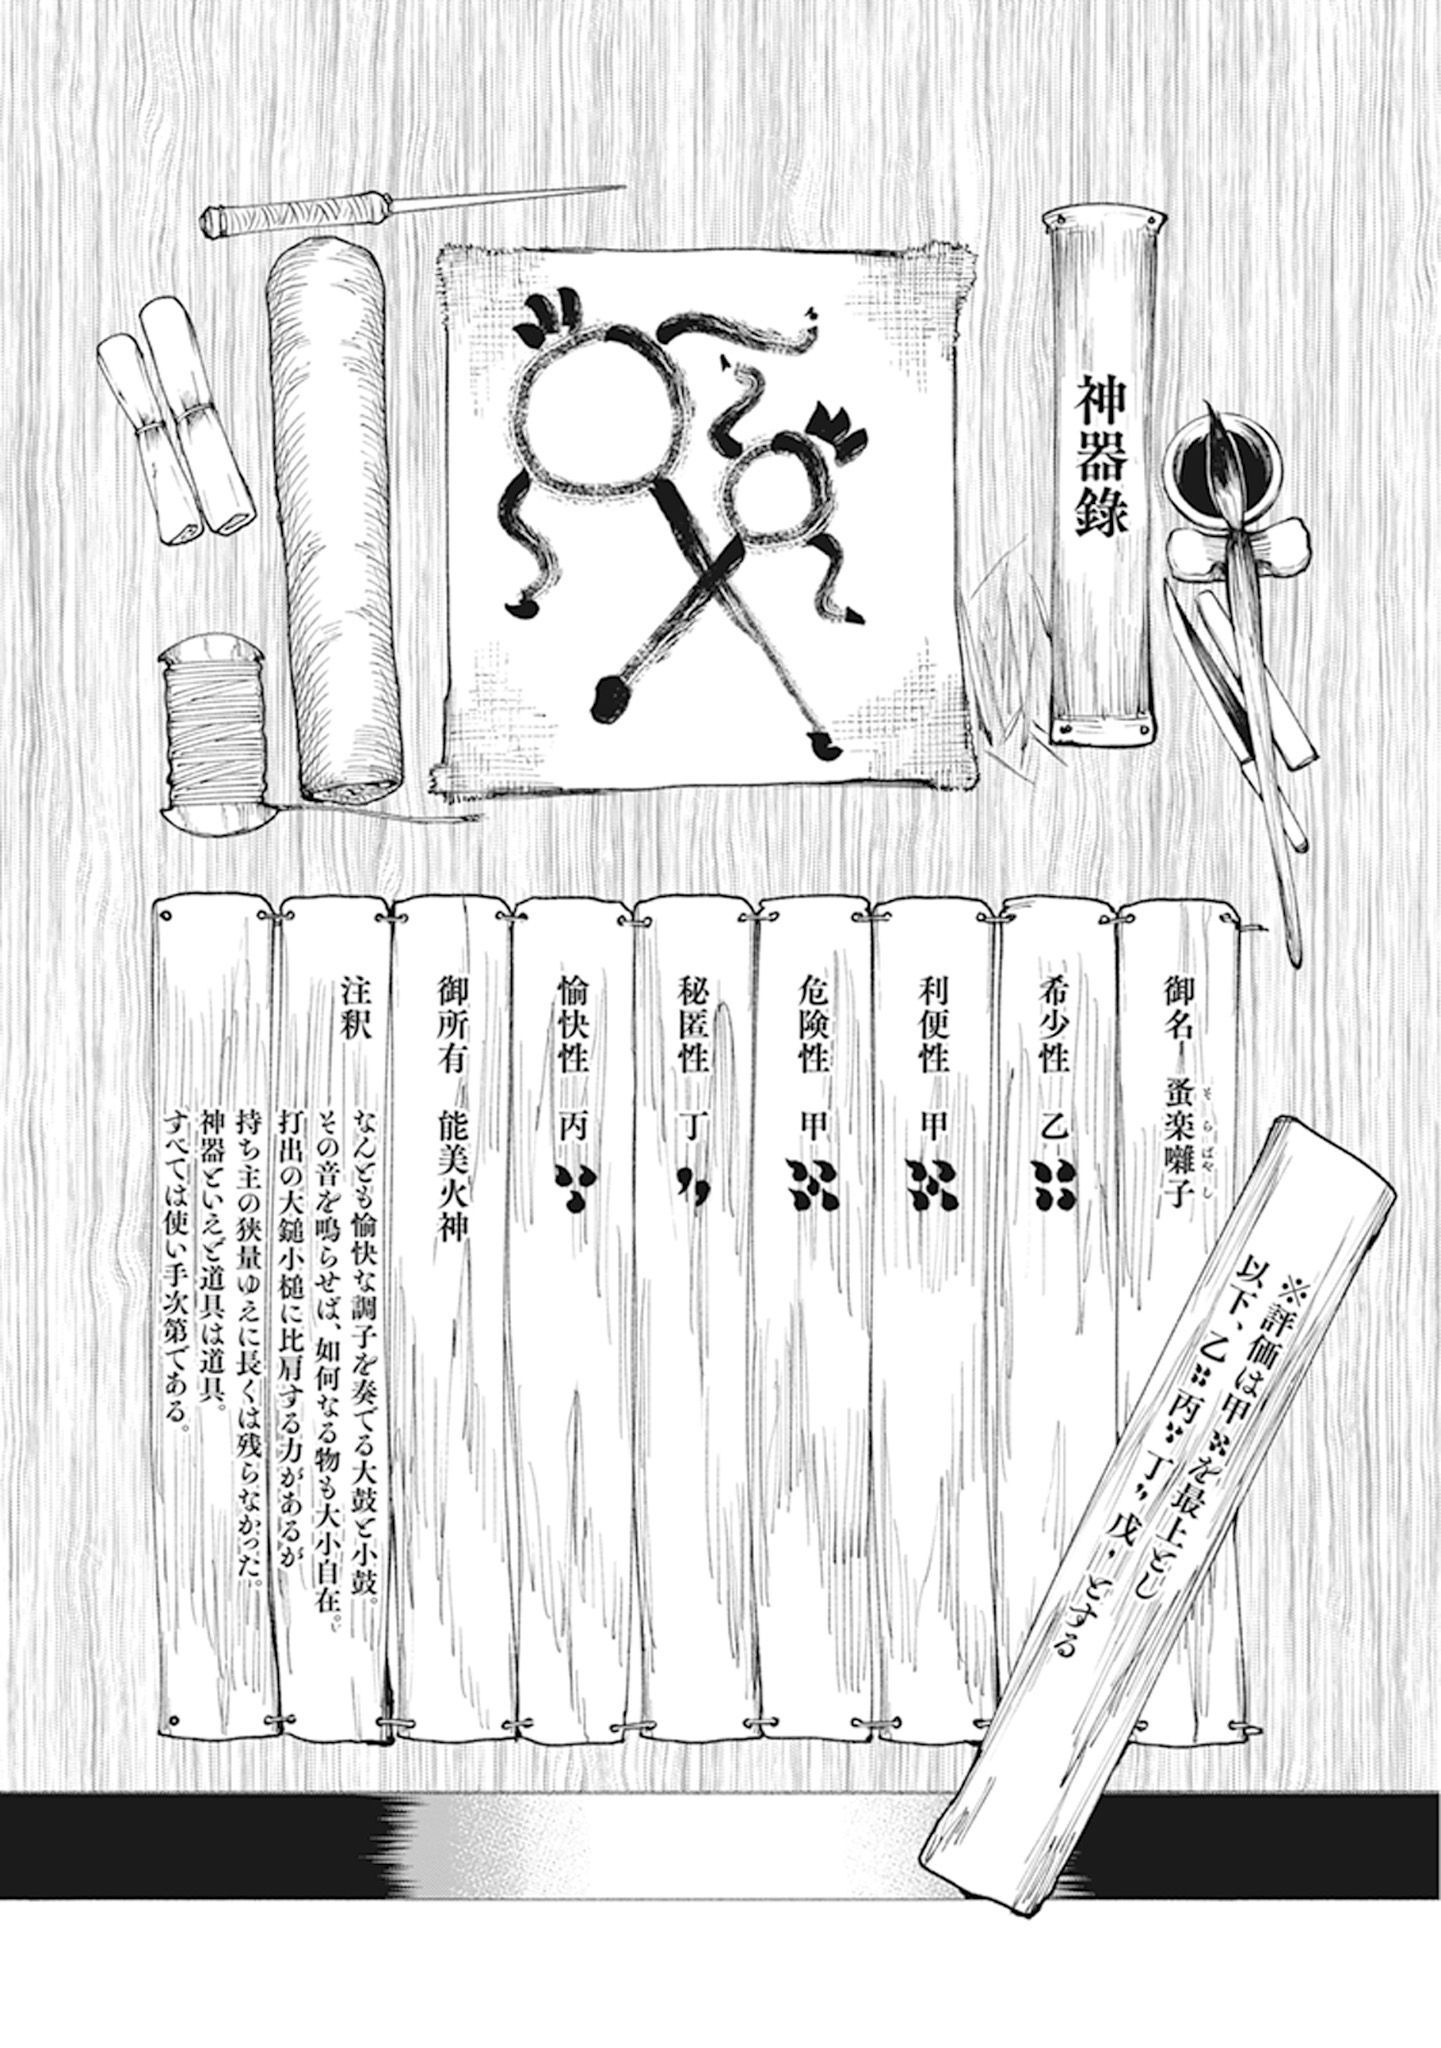 神器錄
御名―蚤楽囃子
そらばやし
希少性　乙
利便性　甲
危険性　甲
秘匿性　丁
愉快性　丙
御所有　能美火神
注釈
なんとも愉快な調子を奏でる大鼓と小鼓。
その音を鳴らせば、如何なる物も大小自在。
打出の大鎚小槌に比肩する力があるが
持ち主の狭量ゆえに長くは残らなかった。
神器といえど道具は道具。
すべては使い手次第である。
※評価は甲を最上とし
以下、乙丙丁戊とする